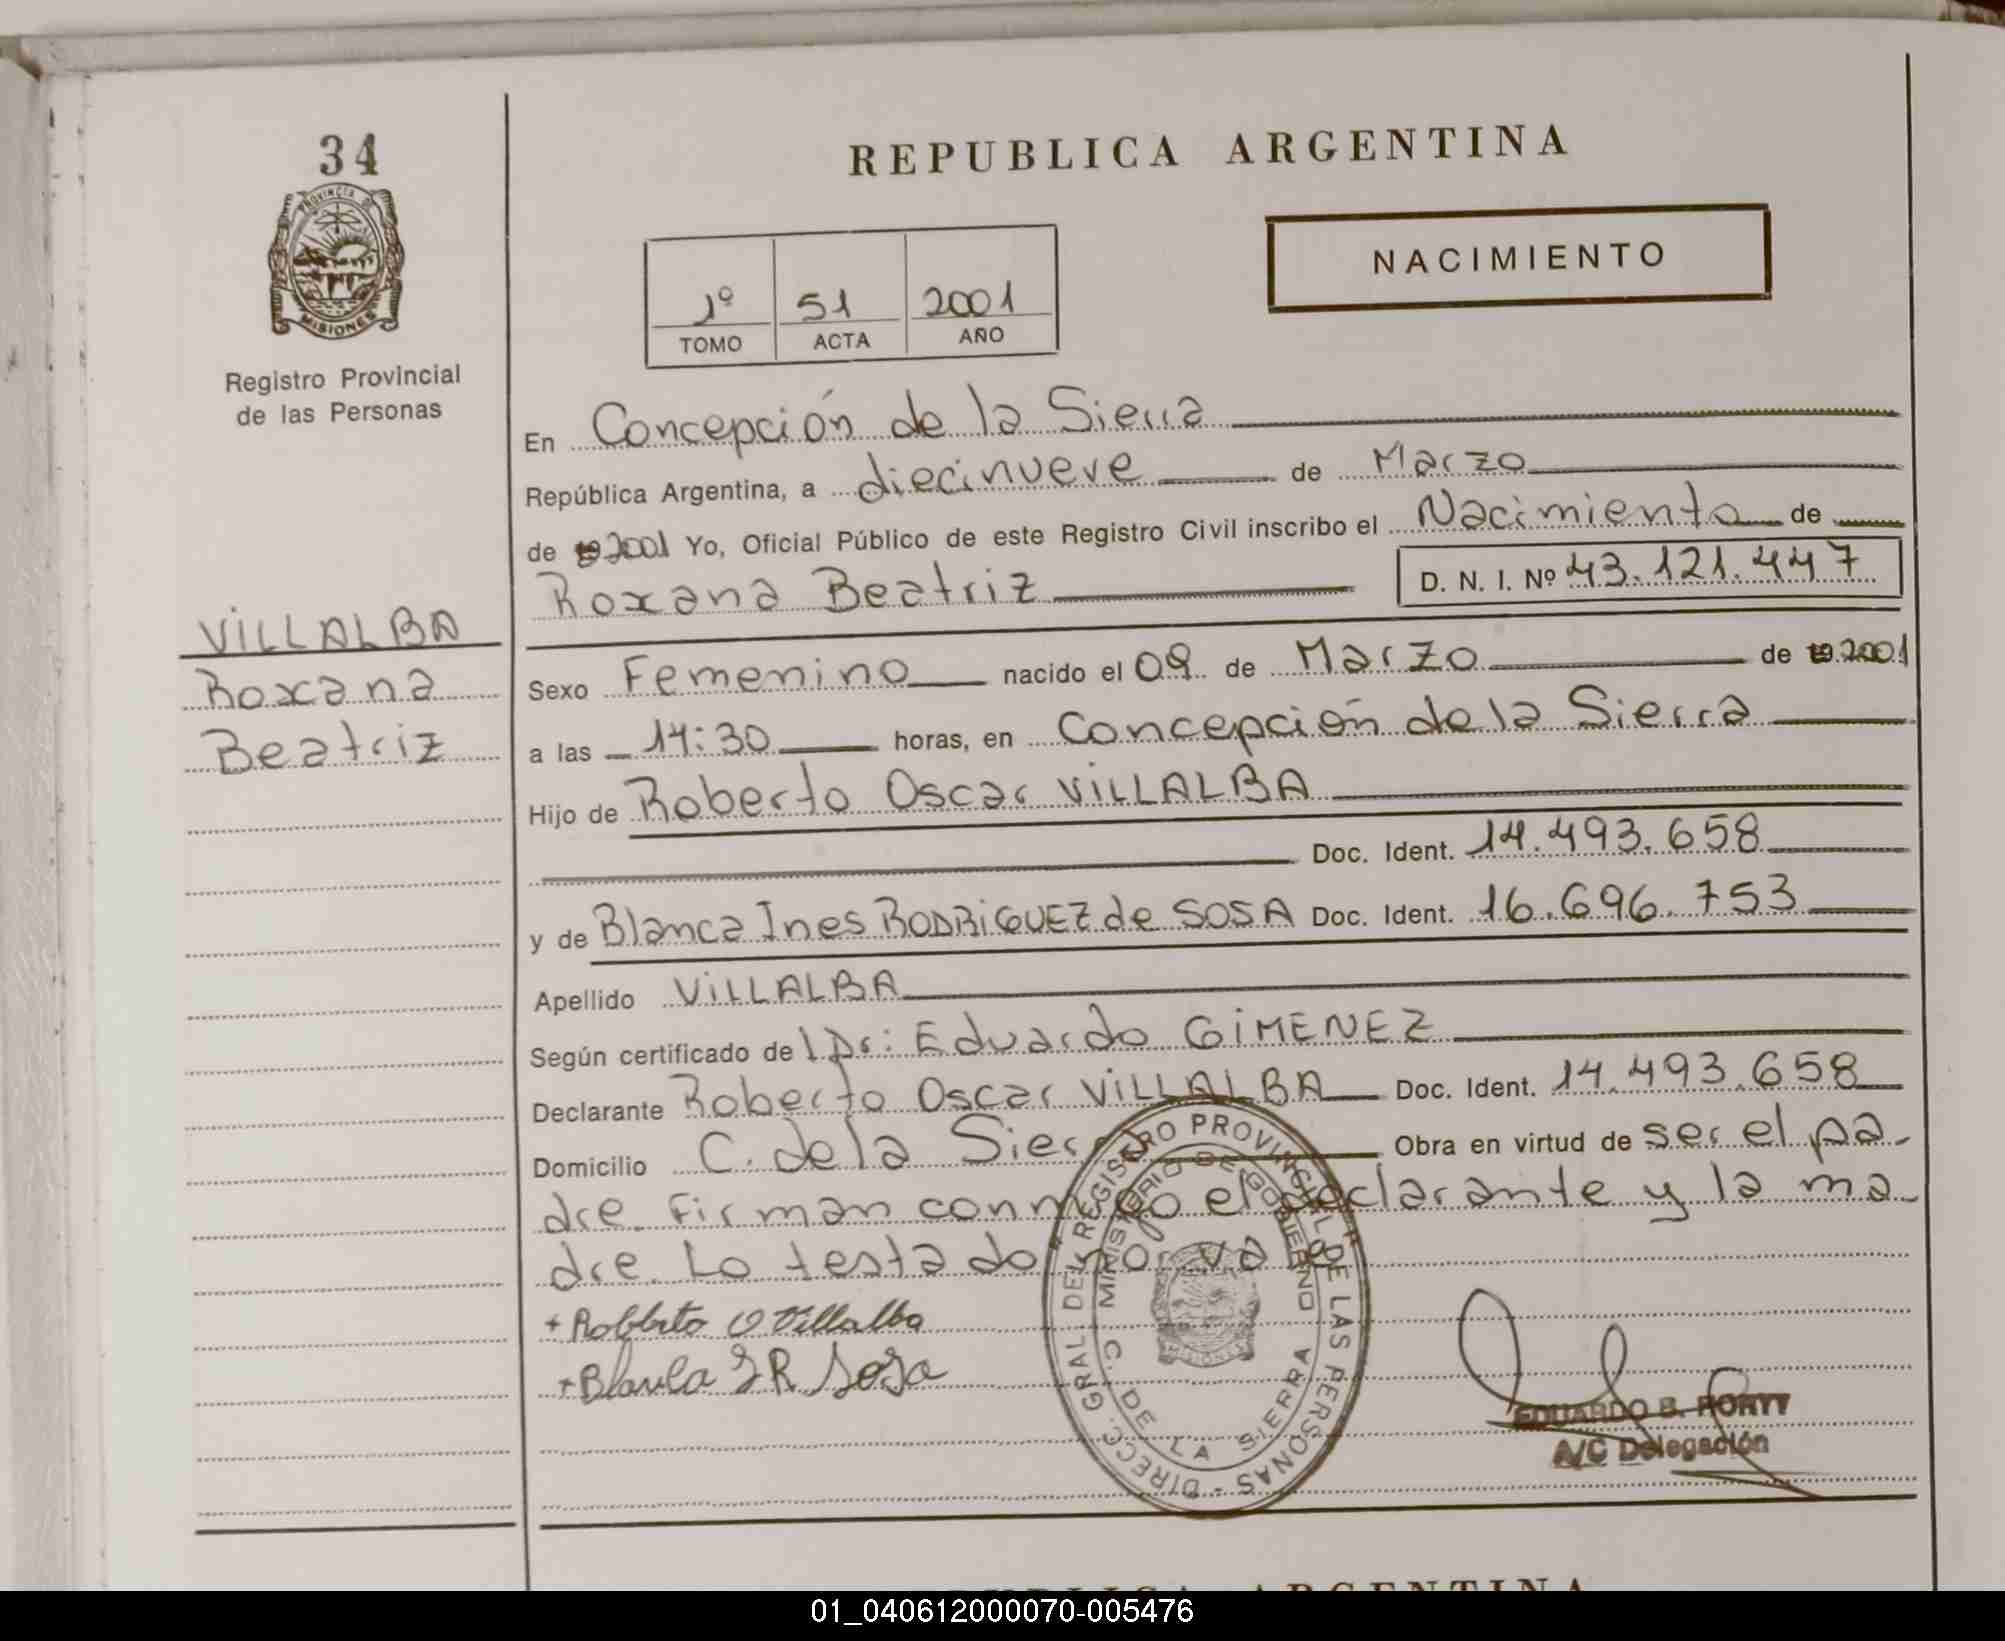 34
PROVINCIA DE
MISIONES
Registro Provincial
de las Personas
VILLALBA
Roxana
Beatriz
REPUBLICA ARGENTINA
1º 51 2001
TOMO ACTA AÑO
NACIMIENTO
En Concepción de la Sierra
República Argentina, a diecinueve de Marzo
de 19 2001 Yo, Oficial Público de este Registro Civil inscribo el Nacimiento de
Roxana Beatriz D. N. I. Nº 43.121.447
Sexo Femenino nacido el 09 de Marzo de 19 2001
a las 14:30 horas, en Concepción de la Sierra
Hijo de Roberto Oscar VILLALBA
Doc. Ident. 14.493.658
y de Blanca Ines RODRIGUEZ de SOSA Doc. Ident. 16.696.753
Apellido VILLALBA
Según certificado de l Dr: Eduardo GIMENEZ
Declarante Roberto Oscar VILLALBA Doc. Ident. 14.493.658
Domicilio C. de la Sierra Obra en virtud de ser el pa-
dre. Firman conmigo el declarante y la ma-
dre. Lo testado no vale
+ Robberto O Villalba
+ Blanca I R Sosa
DIRECC. GRAL. DEL REGISTRO PROVINCIAL DE LAS PERSONAS -
MINISTERIO DE GOBIERNO
C. DE LA SIERRA
MISIONES
EDUARDO B. PORYT
A/C Delegación
REPUBLICA ARGENTINA
01_040612000070-005476